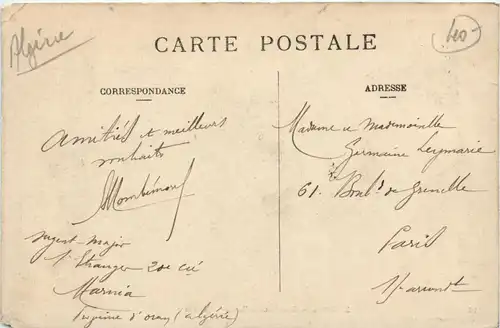 Algérie
CARTE POSTALE
CORRESPONDANCE
Amitiés et meilleurs
souhaits
Sergent-Major
1er Etranger 20e Cie
Marnia
Province d'Oran (Algérie)
ADRESSE
Madame et Mademoiselle
Germaine Leymarie
61. Boul.d de Grenelle
Paris